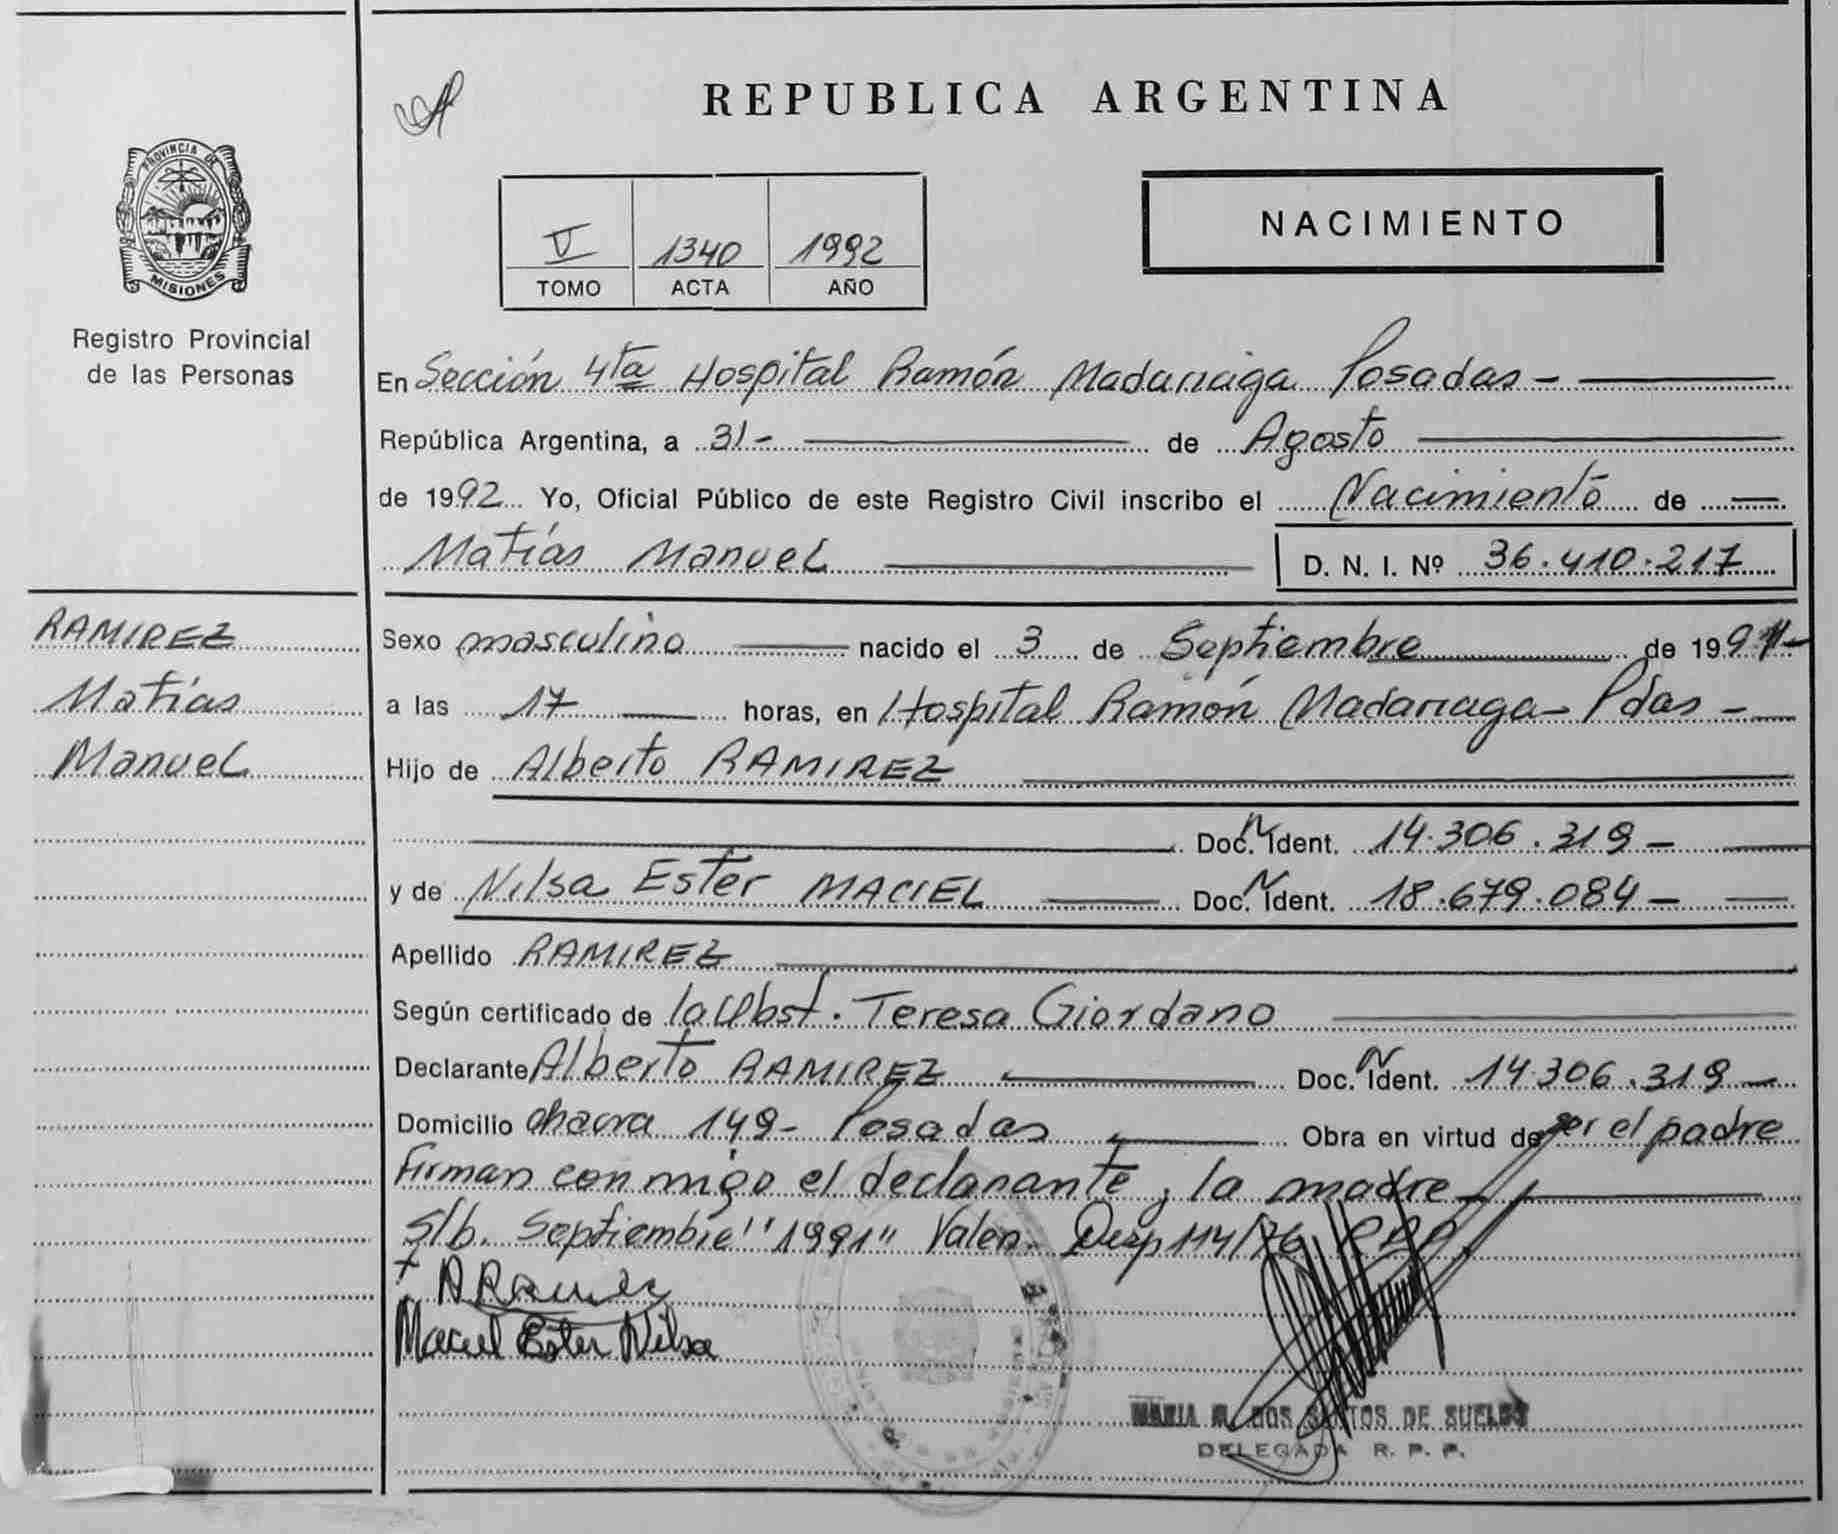 REPUBLICA ARGENTINA
PROVINCIA DE
MISIONES
Registro Provincial
de las Personas
V 1340 1992
TOMO ACTA AÑO
NACIMIENTO
En Sección 4ta Hospital Ramón Madariaga Posadas -
República Argentina, a 31- de Agosto
de 1992 Yo, Oficial Público de este Registro Civil inscribo el Nacimiento de
Matías Manuel D. N. I. Nº 36.410.217
RAMIREZ
Matías
Manuel
Sexo masculino nacido el 3 de Septiembre de 1991-
a las 17 horas, en Hospital Ramón Madariaga - Pdas -
Hijo de Alberto RAMIREZ
Doc. N Ident. 14.306.319 -
y de Nilsa Ester MACIEL Doc. N Ident. 18.679.084 -
Apellido RAMIREZ
Según certificado de la Obst. Teresa Giordano
Declarante Alberto RAMIREZ Doc. N Ident. 14.306.319 -
Domicilio chacra 149 - Posadas Obra en virtud de ser el padre
Firman conmigo el declarante, la madre
S/b. Septiembre "1991" Valen. Disp 114/76
A Ramirez
Maciel Ester Nilsa
MARIA DOS SANTOS DE SUELDO
DELEGADA R. P. P.